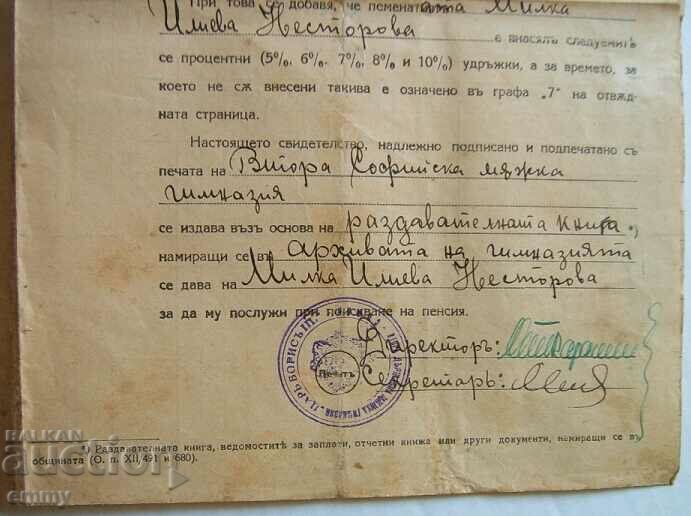 При това се добавя, че поменатата Милка
Илиева Несторова е внасялъ следуемитѣ
се процентни (5%, 6%, 7%, 8% и 10%) удръжки, а за времето, за
което не сѫ внесени такива е означено въ графа „7" на отвѫд-
ната страница.
Настоящето свидетелство, надлежно подписано и подпечатано съ
печата на Втора Софийска мѫжка
гимназия
се издава възъ основа на раздавателната книга *)
намиращи се въ архивата на гимназията
се дава на Милка Илиева Несторова
за да му послужи при поискване на пенсия.
Директоръ:
Секретарь:
Печатъ
ЦАРЬ БОРИСЪ III
*) Раздавателната книга, ведомоститѣ за заплати, отчетни книжа или други документи, намиращи се въ
общината (О. п. XII/491 и 680).
BALKAN
auction
emmy